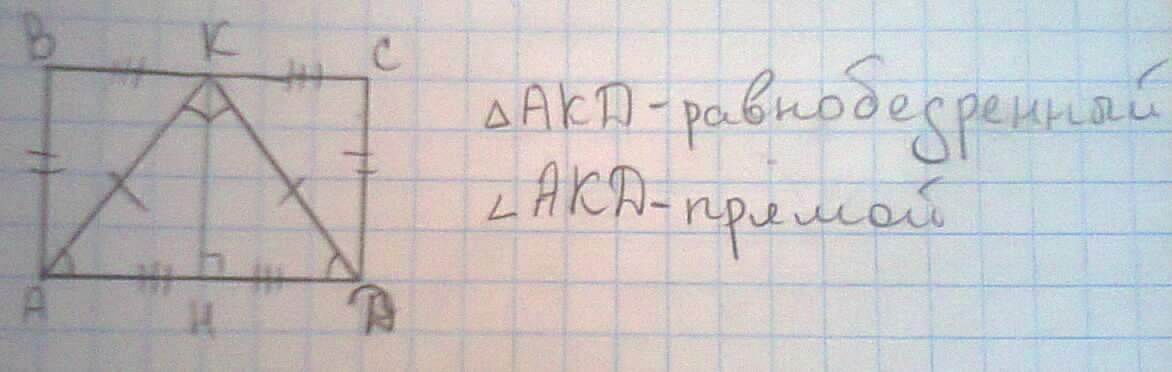 B K C
△AKD-равнобедренный
∠AKD-прямой
A H D